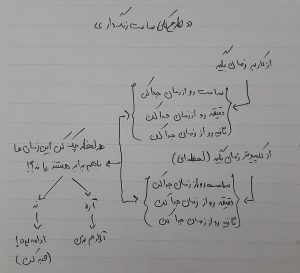 « طرح کلی ساعت زنگ دار »
از کاربر زمان بگیر
ساعت رو از زمان جدا کن
دقیقه رو از زمان جدا کن
ثانیه رو از زمان جدا کن
از کامپیوتر زمان بگیر (لحظه ای)
ساعت رو از زمان جدا کن
دقیقه رو از زمان جدا کن
ثانیه رو از زمان جدا کن
هر لحظه چک کن این زمان ها
باهم برابر هستند یا نه؟!
آره
نه
آلارم بزن
ادامه بده!
(صبر کن)